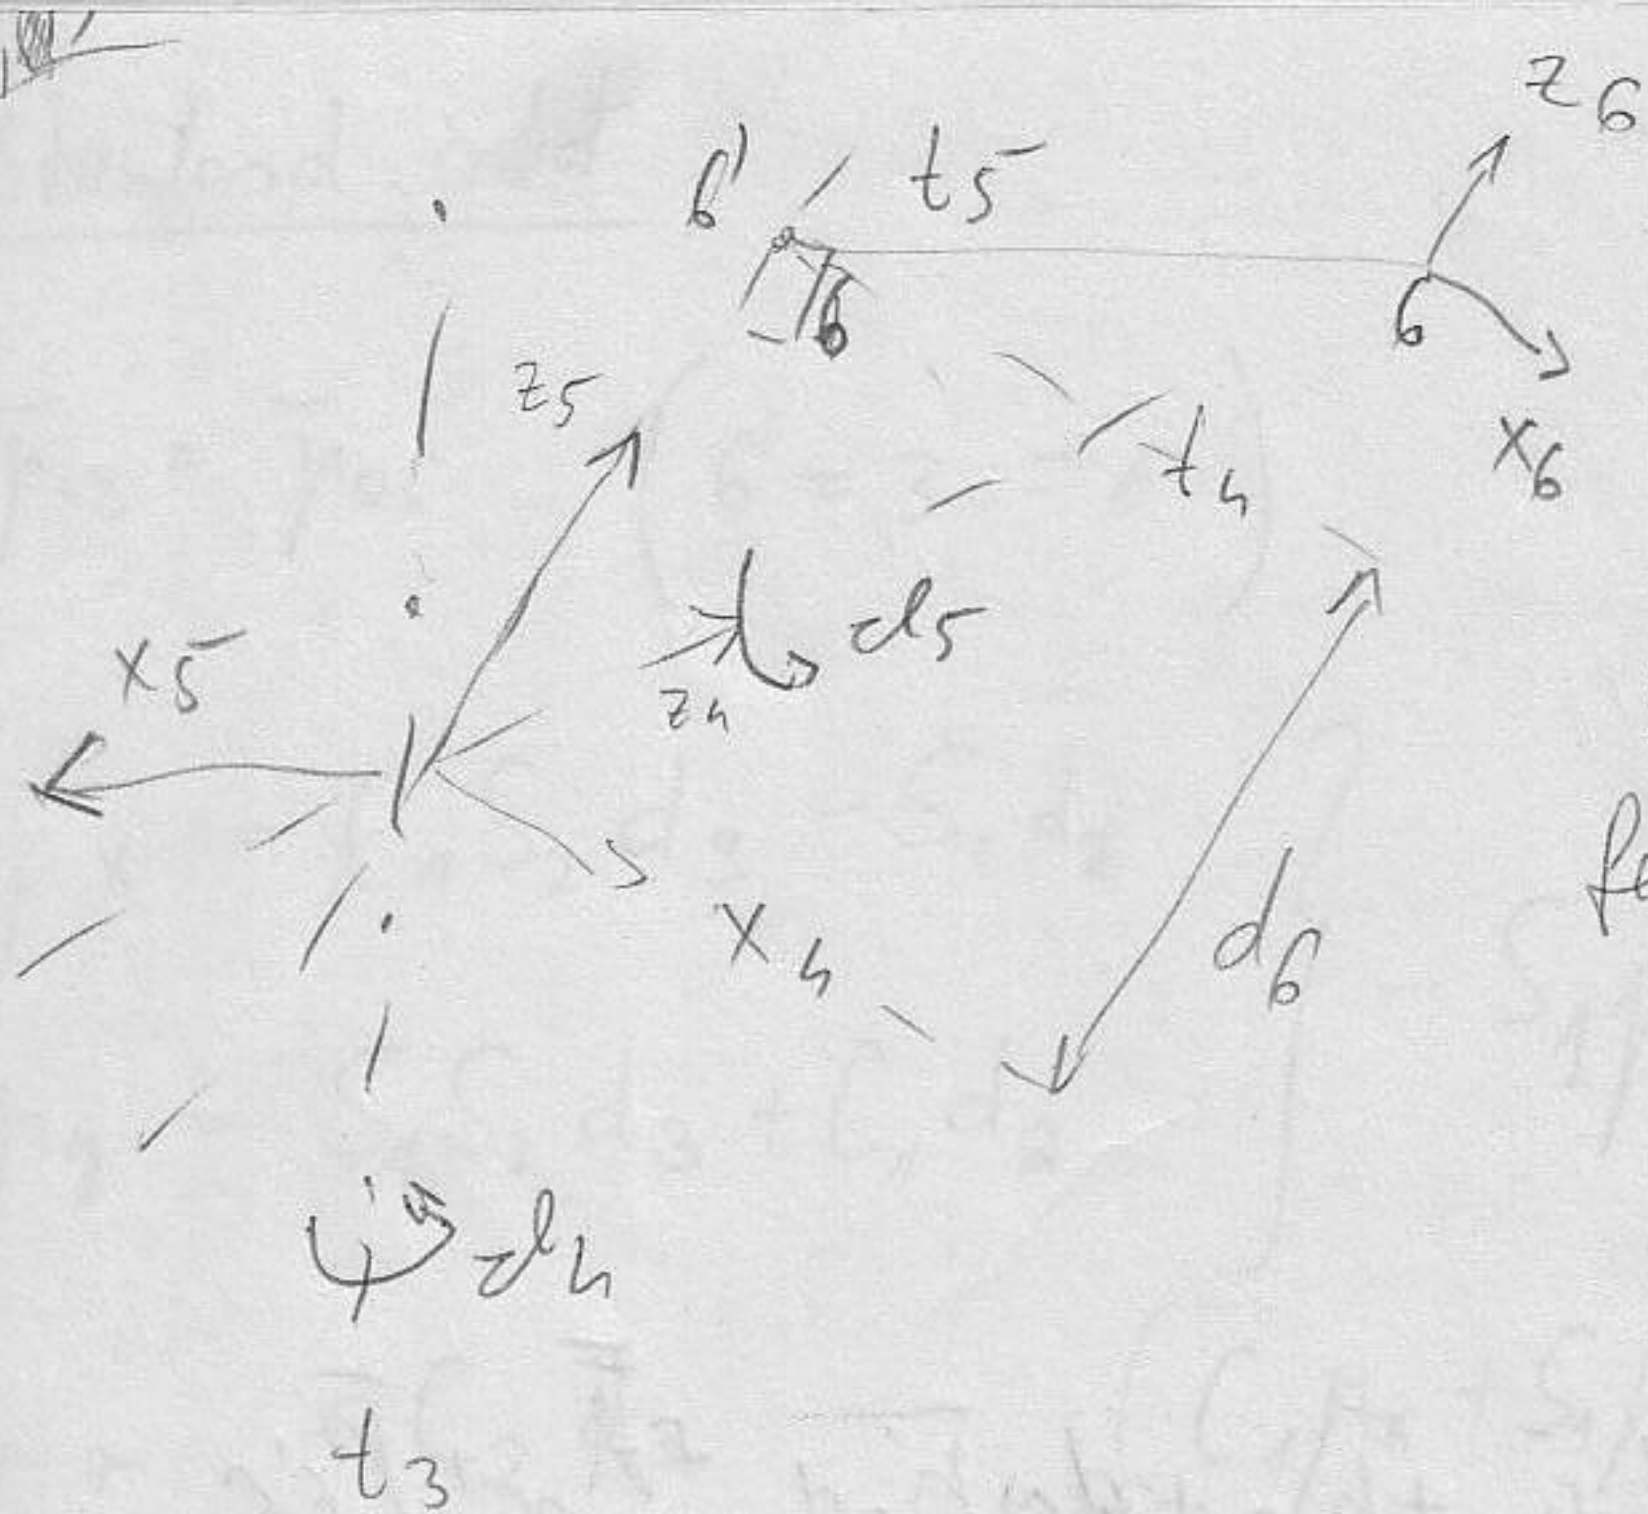 z6
6'
t5
6
6
z5
x6
t4
d5
x5
z4
x4
d6
d4
t3